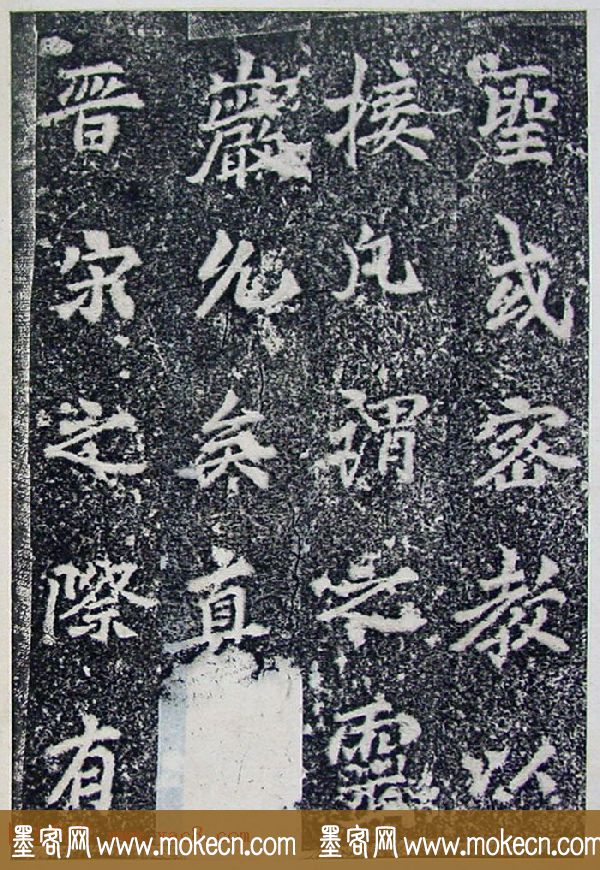 聖或密教以
接凡謂之靈
巖允矣真
晋宋之際有
墨客网 www.mokecn.com 墨客网 www.mokecn.com